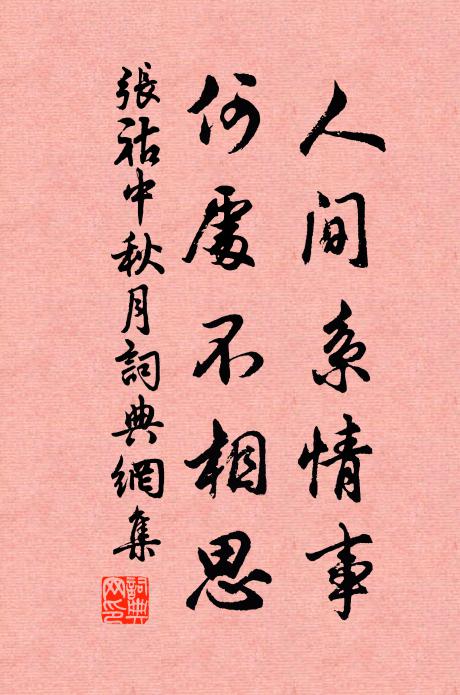 人间系情事
何處不相思
張祜中秋月詞典網集
詞典
网印